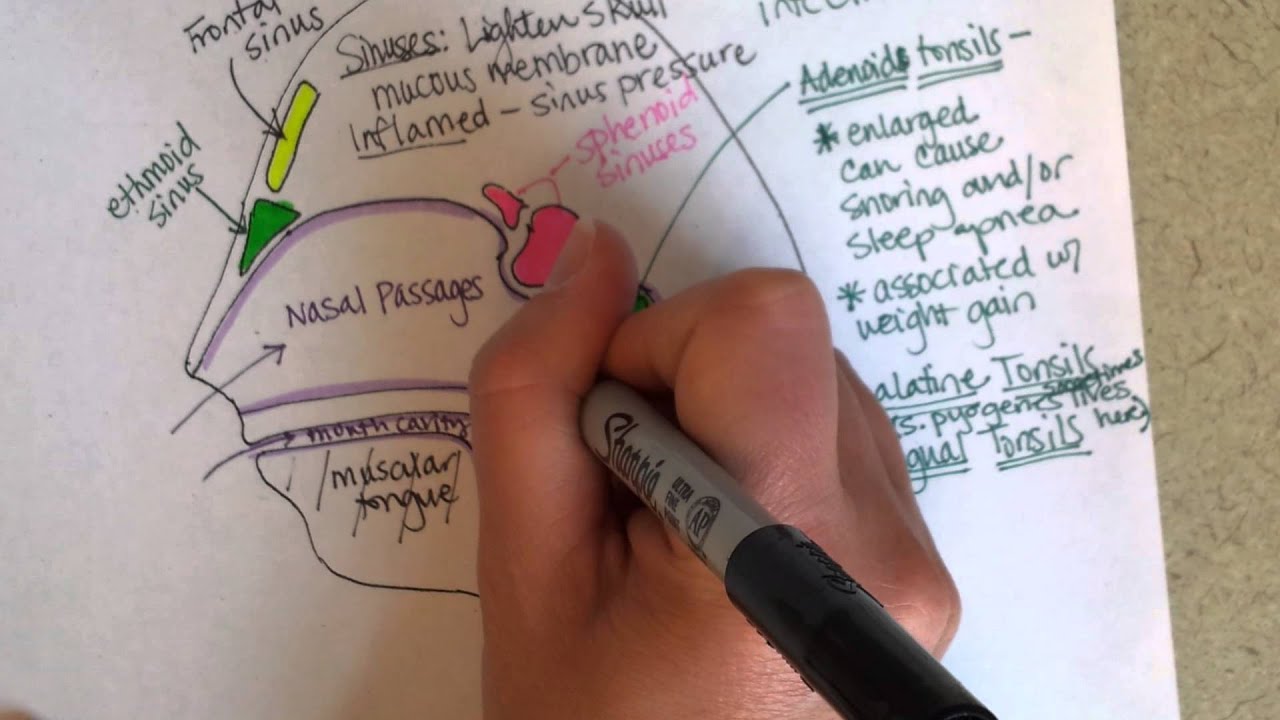 Frontal
sinus
Sinuses: Lighten skull
mucous membrane
Inflamed – sinus pressure
sphenoid
sinuses
ethmoid
sinus
Nasal Passages
mouth cavity
muscular
tongue
Adenoids tonsils –
* enlarged
can cause
snoring and/or
sleep apnea
* associated w/
weight gain
alatine Tonsils
(s. pyogenes sometimes lives
here)
gual Tonsils
Sharpie
ULTRA
FINE
AP